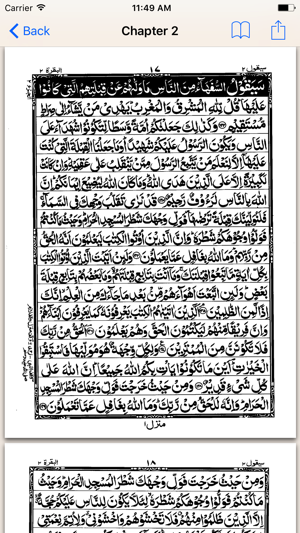 Carrier 11:49 AM
Back Chapter 2
سيقول ٢ ١٧ البقرة ٢
سَيَقُولُ السُّفَهَآءُ مِنَ النَّاسِ مَا وَلّٰىهُمْ عَنْ قِبْلَتِهِمُ الَّتِىْ كَانُوْا
عَلَيْهَا ؕ قُلْ لِّلّٰهِ الْمَشْرِقُ وَالْمَغْرِبُ ؕ يَهْدِىْ مَنْ يَّشَآءُ اِلٰى صِرَاطٍ
مُّسْتَقِيْمٍ ۝ وَكَذٰلِكَ جَعَلْنٰكُمْ اُمَّةً وَّسَطًا لِّتَكُوْنُوْا شُهَدَآءَ عَلَى
النَّاسِ وَيَكُوْنَ الرَّسُوْلُ عَلَيْكُمْ شَهِيْدًا ؕ وَمَا جَعَلْنَا الْقِبْلَةَ الَّتِىْ كُنْتَ
عَلَيْهَآ اِلَّا لِنَعْلَمَ مَنْ يَّتَّبِعُ الرَّسُوْلَ مِمَّنْ يَّنْقَلِبُ عَلٰى عَقِبَيْهِ ؕ وَاِنْ كَانَتْ
لَكَبِيْرَةً اِلَّا عَلَى الَّذِيْنَ هَدَى اللّٰهُ ؕ وَمَا كَانَ اللّٰهُ لِيُضِيْعَ اِيْمَانَكُمْ ؕ اِنَّ
اللّٰهَ بِالنَّاسِ لَرَءُوْفٌ رَّحِيْمٌ ۝ قَدْ نَرٰى تَقَلُّبَ وَجْهِكَ فِى السَّمَآءِ ۚ
فَلَنُوَلِّيَنَّكَ قِبْلَةً تَرْضٰىهَا ۪ فَوَلِّ وَجْهَكَ شَطْرَ الْمَسْجِدِ الْحَرَامِ ؕ وَحَيْثُ مَا كُنْتُمْ
فَوَلُّوْا وُجُوْهَكُمْ شَطْرَهٗ ؕ وَاِنَّ الَّذِيْنَ اُوْتُوا الْكِتٰبَ لَيَعْلَمُوْنَ اَنَّهُ الْحَقُّ
مِنْ رَّبِّهِمْ ؕ وَمَا اللّٰهُ بِغَافِلٍ عَمَّا يَعْمَلُوْنَ ۝ وَلَئِنْ اَتَيْتَ الَّذِيْنَ اُوْتُوا الْكِتٰبَ
بِكُلِّ اٰيَةٍ مَّا تَبِعُوْا قِبْلَتَكَ ۚ وَمَآ اَنْتَ بِتَابِعٍ قِبْلَتَهُمْ ۚ وَمَا بَعْضُهُمْ بِتَابِعٍ قِبْلَةَ
بَعْضٍ ؕ وَلَئِنِ اتَّبَعْتَ اَهْوَآءَهُمْ مِّنْۢ بَعْدِ مَا جَآءَكَ مِنَ الْعِلْمِ ۙ اِنَّكَ
اِذًا لَّمِنَ الظّٰلِمِيْنَ ۝ اَلَّذِيْنَ اٰتَيْنٰهُمُ الْكِتٰبَ يَعْرِفُوْنَهٗ كَمَا يَعْرِفُوْنَ اَبْنَآءَهُمْ ؕ
وَاِنَّ فَرِيْقًا مِّنْهُمْ لَيَكْتُمُوْنَ الْحَقَّ وَهُمْ يَعْلَمُوْنَ ۝ اَلْحَقُّ مِنْ رَّبِّكَ
فَلَا تَكُوْنَنَّ مِنَ الْمُمْتَرِيْنَ ۝ وَلِكُلٍّ وِّجْهَةٌ هُوَ مُوَلِّيْهَا فَاسْتَبِقُوا
الْخَيْرٰتِ ؕ اَيْنَ مَا تَكُوْنُوْا يَاْتِ بِكُمُ اللّٰهُ جَمِيْعًا ؕ اِنَّ اللّٰهَ عَلٰى
كُلِّ شَىْءٍ قَدِيْرٌ ۝ وَمِنْ حَيْثُ خَرَجْتَ فَوَلِّ وَجْهَكَ شَطْرَ الْمَسْجِدِ
الْحَرَامِ ؕ وَاِنَّهٗ لَلْحَقُّ مِنْ رَّبِّكَ ؕ وَمَا اللّٰهُ بِغَافِلٍ عَمَّا تَعْمَلُوْنَ ۝
منزل ١
سيقول ٢ ١٨ البقرة ٢
وَمِنْ حَيْثُ خَرَجْتَ فَوَلِّ وَجْهَكَ شَطْرَ الْمَسْجِدِ الْحَرَامِ ؕ وَحَيْثُ
مَا كُنْتُمْ فَوَلُّوْا وُجُوْهَكُمْ شَطْرَهٗ ۙ لِئَلَّا يَكُوْنَ لِلنَّاسِ عَلَيْكُمْ حُجَّةٌ ۙ
اِلَّا الَّذِيْنَ ظَلَمُوْا مِنْهُمْ ۗ فَلَا تَخْشَوْهُمْ وَاخْشَوْنِىْ ۗ وَلِاُتِمَّ نِعْمَتِىْ